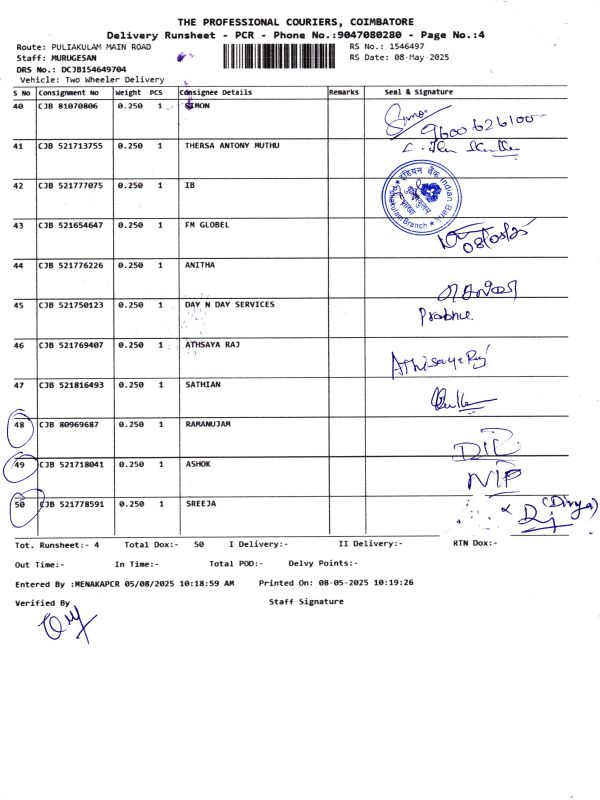 THE PROFESSIONAL COURIERS, COIMBATORE
Delivery Runsheet - PCR - Phone No.:9047080280 - Page No.:4
Route: PULIAKULAM MAIN ROAD RS No.: 1546497
Staff: MURUGESAN RS Date: 08-May-2025
DRS No.: DCJB154649704
Vehicle: Two Wheeler Delivery
S No Consignment No Weight PCS Consignee Details Remarks Seal & Signature
40 CJB 81070806 0.250 1 SIMON Simon
9600626100
41 CJB 521713755 0.250 1 THERSA ANTONY MUTHU
42 CJB 521777075 0.250 1 IB इंडियन बैंक Indian Bank Branch
43 CJB 521654647 0.250 1 FM GLOBEL 08/05/25
44 CJB 521776226 0.250 1 ANITHA
45 CJB 521750123 0.250 1 DAY N DAY SERVICES
46 CJB 521769407 0.250 1 ATHSAYA RAJ Athisaya Raj
47 CJB 521816493 0.250 1 SATHIAN
48 CJB 80969687 0.250 1 RAMANUJAM
49 CJB 521718041 0.250 1 ASHOK
50 CJB 521778591 0.250 1 SREEJA (Divya)
Tot. Runsheet:- 4 Total Dox:- 50 I Delivery:- II Delivery:- RTN Dox:-
Out Time:- In Time:- Total POD:- Delvy Points:-
Entered By :MENAKAPCR 05/08/2025 10:18:59 AM Printed On: 08-05-2025 10:19:26
Verified By Staff Signature